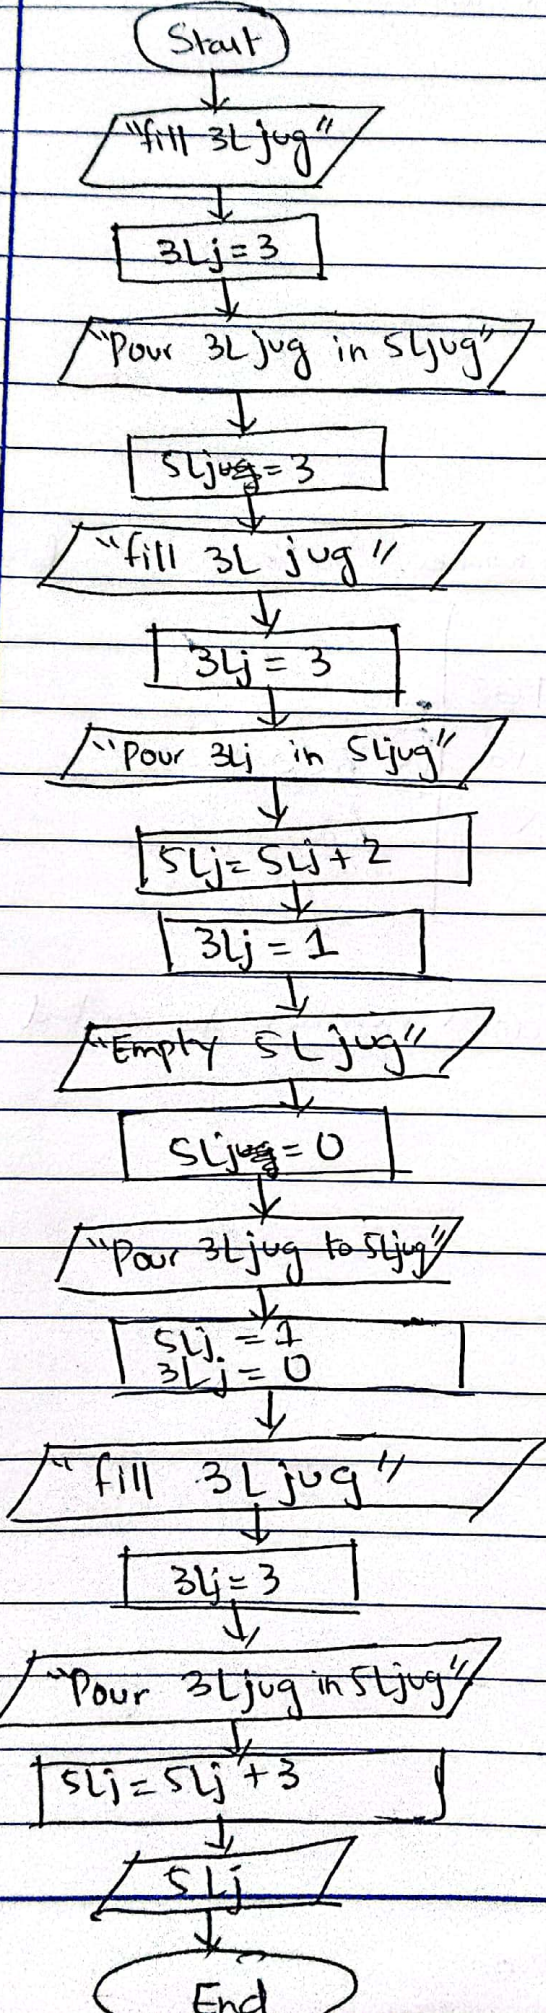 Start
"fill 3L jug"
3Lj = 3
"Pour 3L jug in 5Ljug"
5Ljug = 3
"fill 3L jug"
3Lj = 3
"Pour 3Lj in 5Ljug"
5Lj = 5Lj + 2
3Lj = 1
"Empty 5L jug"
5Ljug = 0
"Pour 3Ljug to 5Ljug"
5Lj = 1
3Lj = 0
"fill 3L jug"
3Lj = 3
"Pour 3Ljug in 5Ljug"
5Lj = 5Lj + 3
5Lj
End